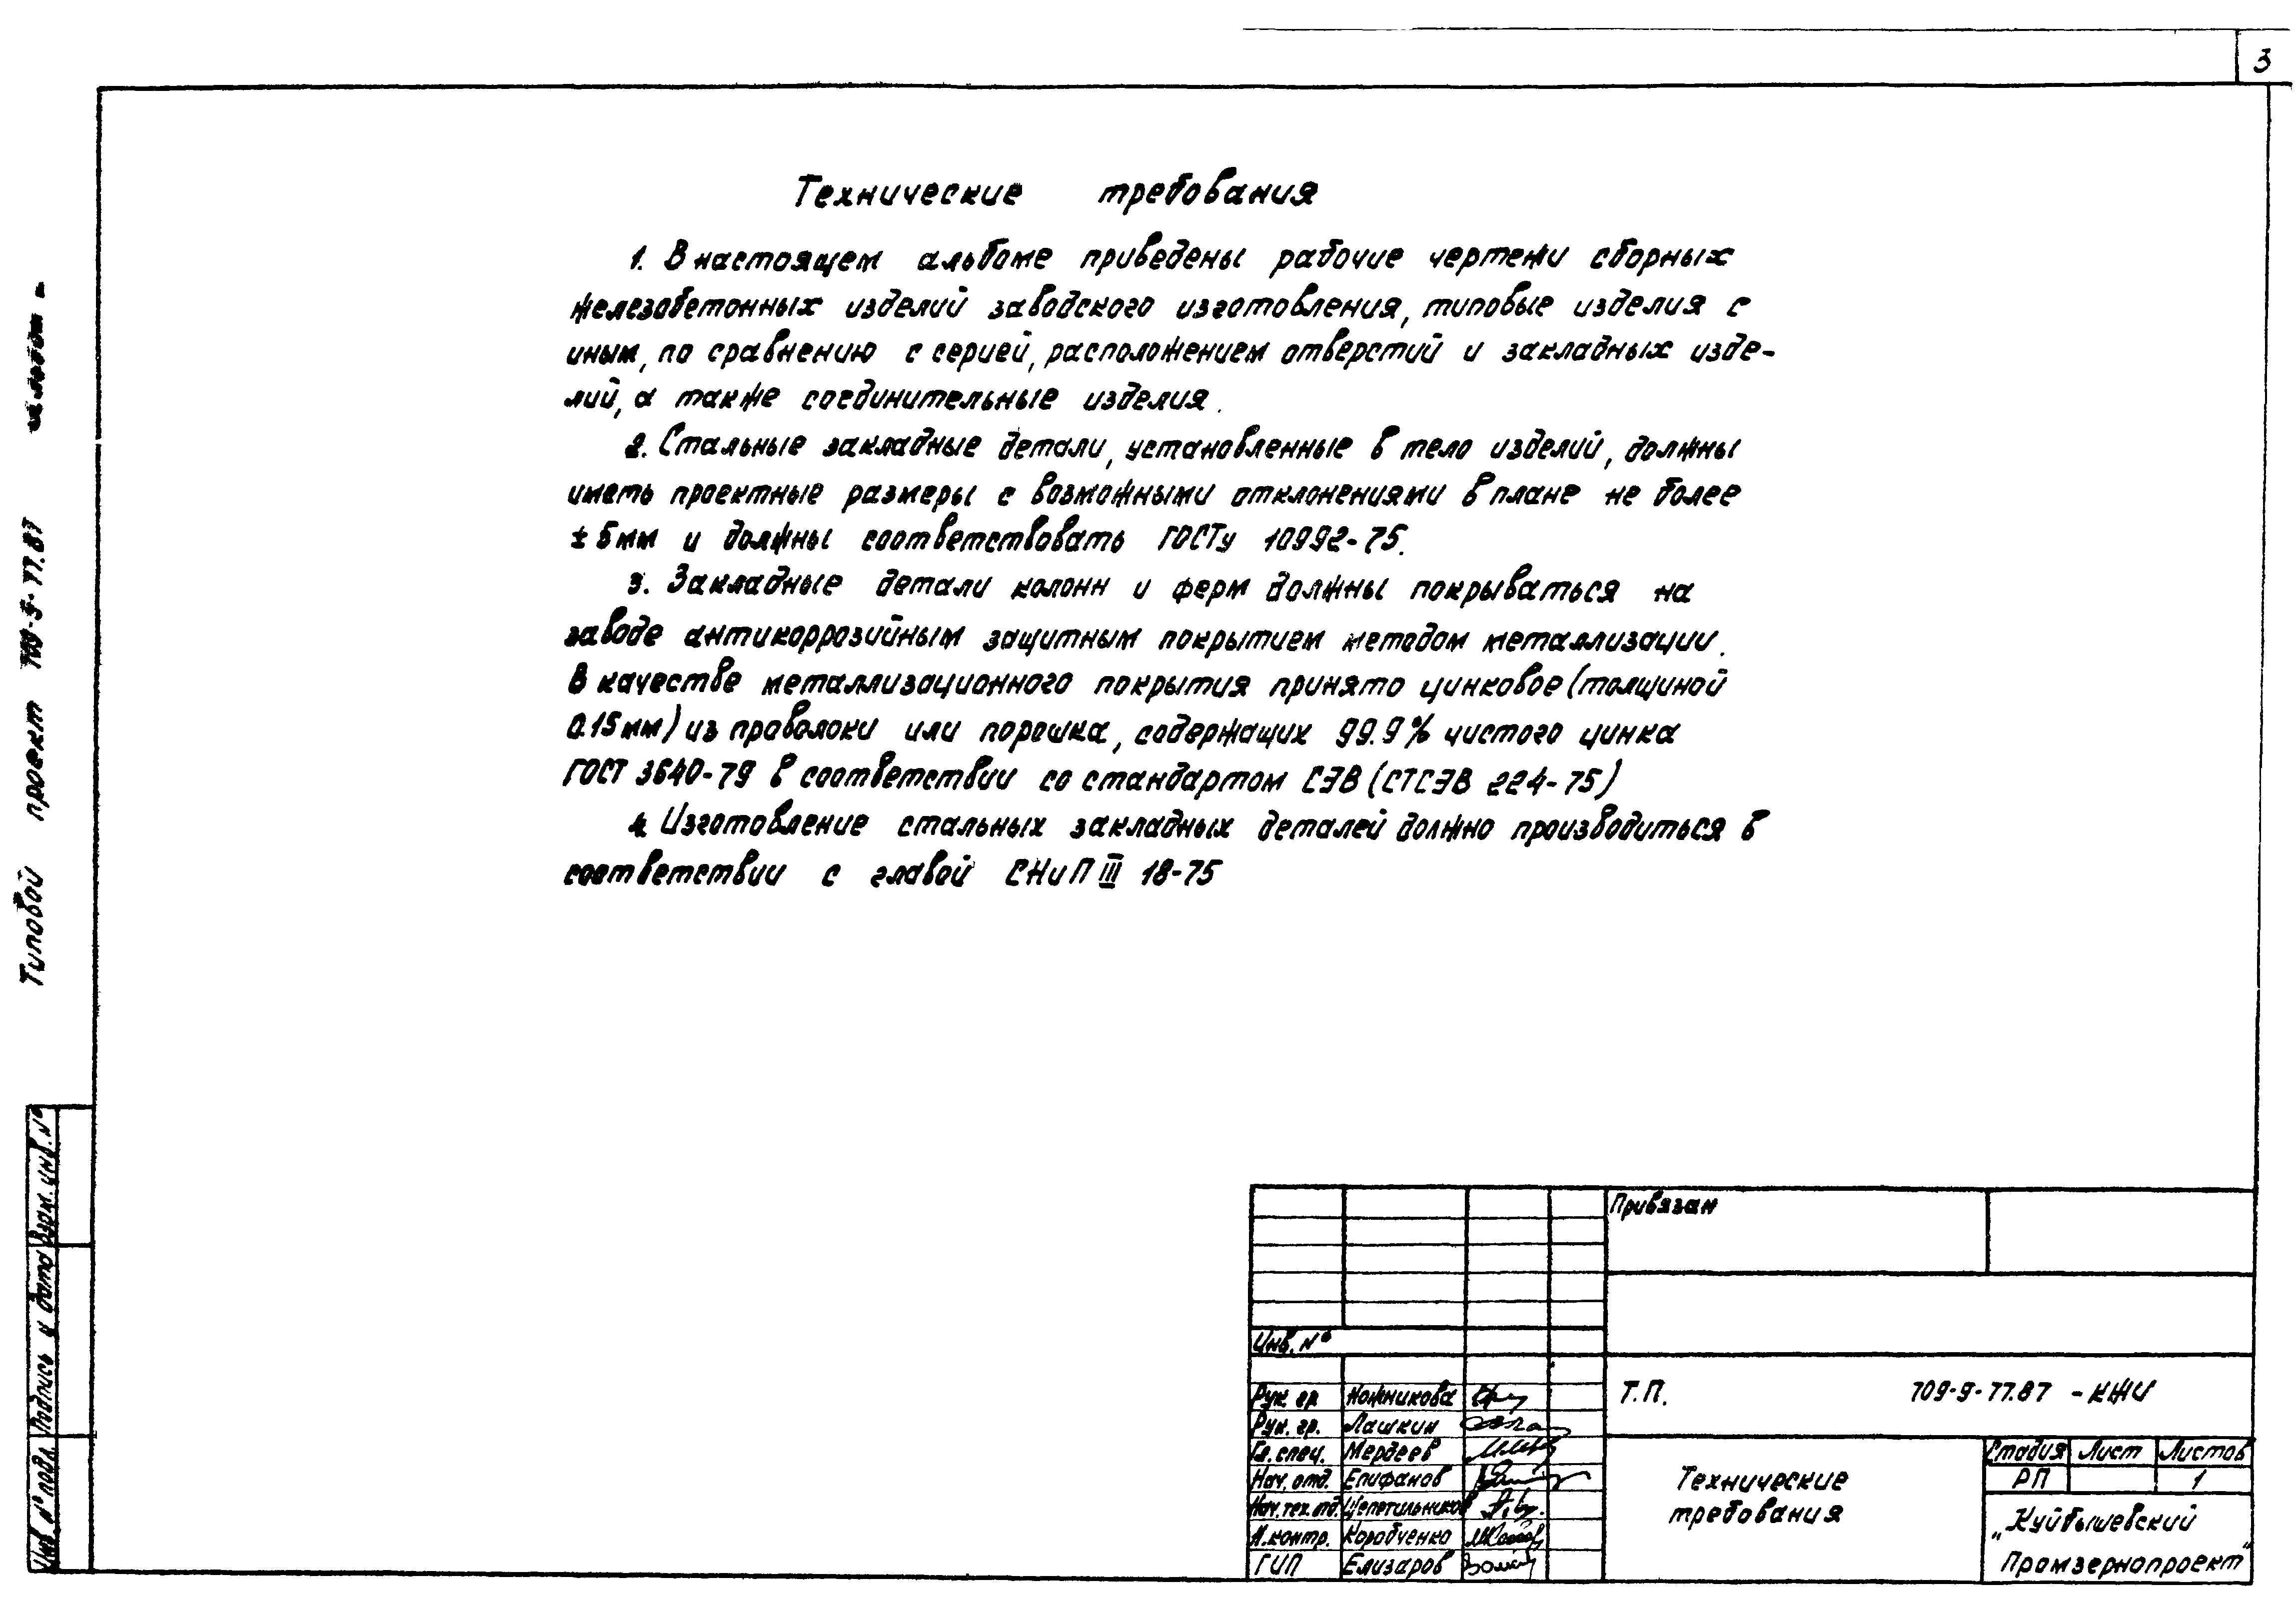 3
Технические требования
1. В настоящем альбоме приведены рабочие чертежи сборных
железобетонных изделий заводского изготовления, типовые изделия с
иным, по сравнению с серией, расположением отверстий и закладных изде-
лий, а также соединительные изделия.
2. Стальные закладные детали, установленные в тело изделий, должны
иметь проектные размеры с возможными отклонениями в плане не более
± 5мм и должны соответствовать ГОСТу 10992-75.
3. Закладные детали колонн и ферм должны покрываться на
заводе антикоррозийным защитным покрытием методом металлизации.
В качестве металлизационного покрытия принято цинковое (толщиной
0.15мм) из проволоки или порошка, содержащих 99.9% чистого цинка
ГОСТ 3640-79 в соответствии со стандартом СЭВ (СТСЭВ 224-75)
4. Изготовление стальных закладных деталей должно производиться в
соответствии с главой СНиП III 18-75
Типовой проект 709-9-77.87
Взам. инв. №
Подпись и дата
Инв. № подл.
Привязан
Инв. №
Рук. гр Ножникова
Рук. гр. Лашкин
Гл. спец. Мердеев
Нач. отд. Епифанов
Нач. тех. отд. Цепетильников
Н. контр. Коробченко
ГИП Елизаров
Т.П. 709-9-77.87 - КЖИ
Технические
требования
Стадия Лист Листов
РП 1
„Куйбышевский
Промзернопроект"